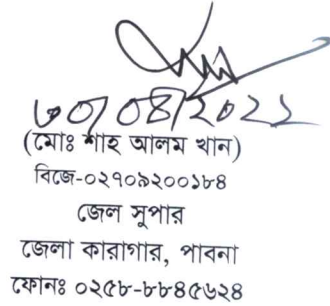 ৩০/০৪/২০২১
(মোঃ শাহ আলম খান)
বিজে-০২৭০৯২০০১৮৪
জেল সুপার
জেলা কারাগার, পাবনা
ফোনঃ ০২৫৮-৮৮৪৫৬২৪